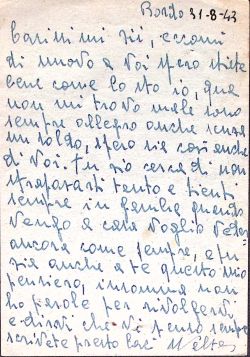 Bordo 31-8-43
Carissimi zii, eccomi
di nuovo a voi spero stiate
bene come lo sto io, qua
non mi trovo male sono
sempre allegro anche senza
un soldo, spero sia così anche
di voi. Tu zio cerca di non
straparti tanto e tienti
sempre in gamba quando
vengo a casa voglio veder
ancora come sempre, e tu
zia anche a te questo mio
pensiero, insomma non
ho parole per rivolgervi
e dirvi che vi penso sempre
scrivete presto baci Walter